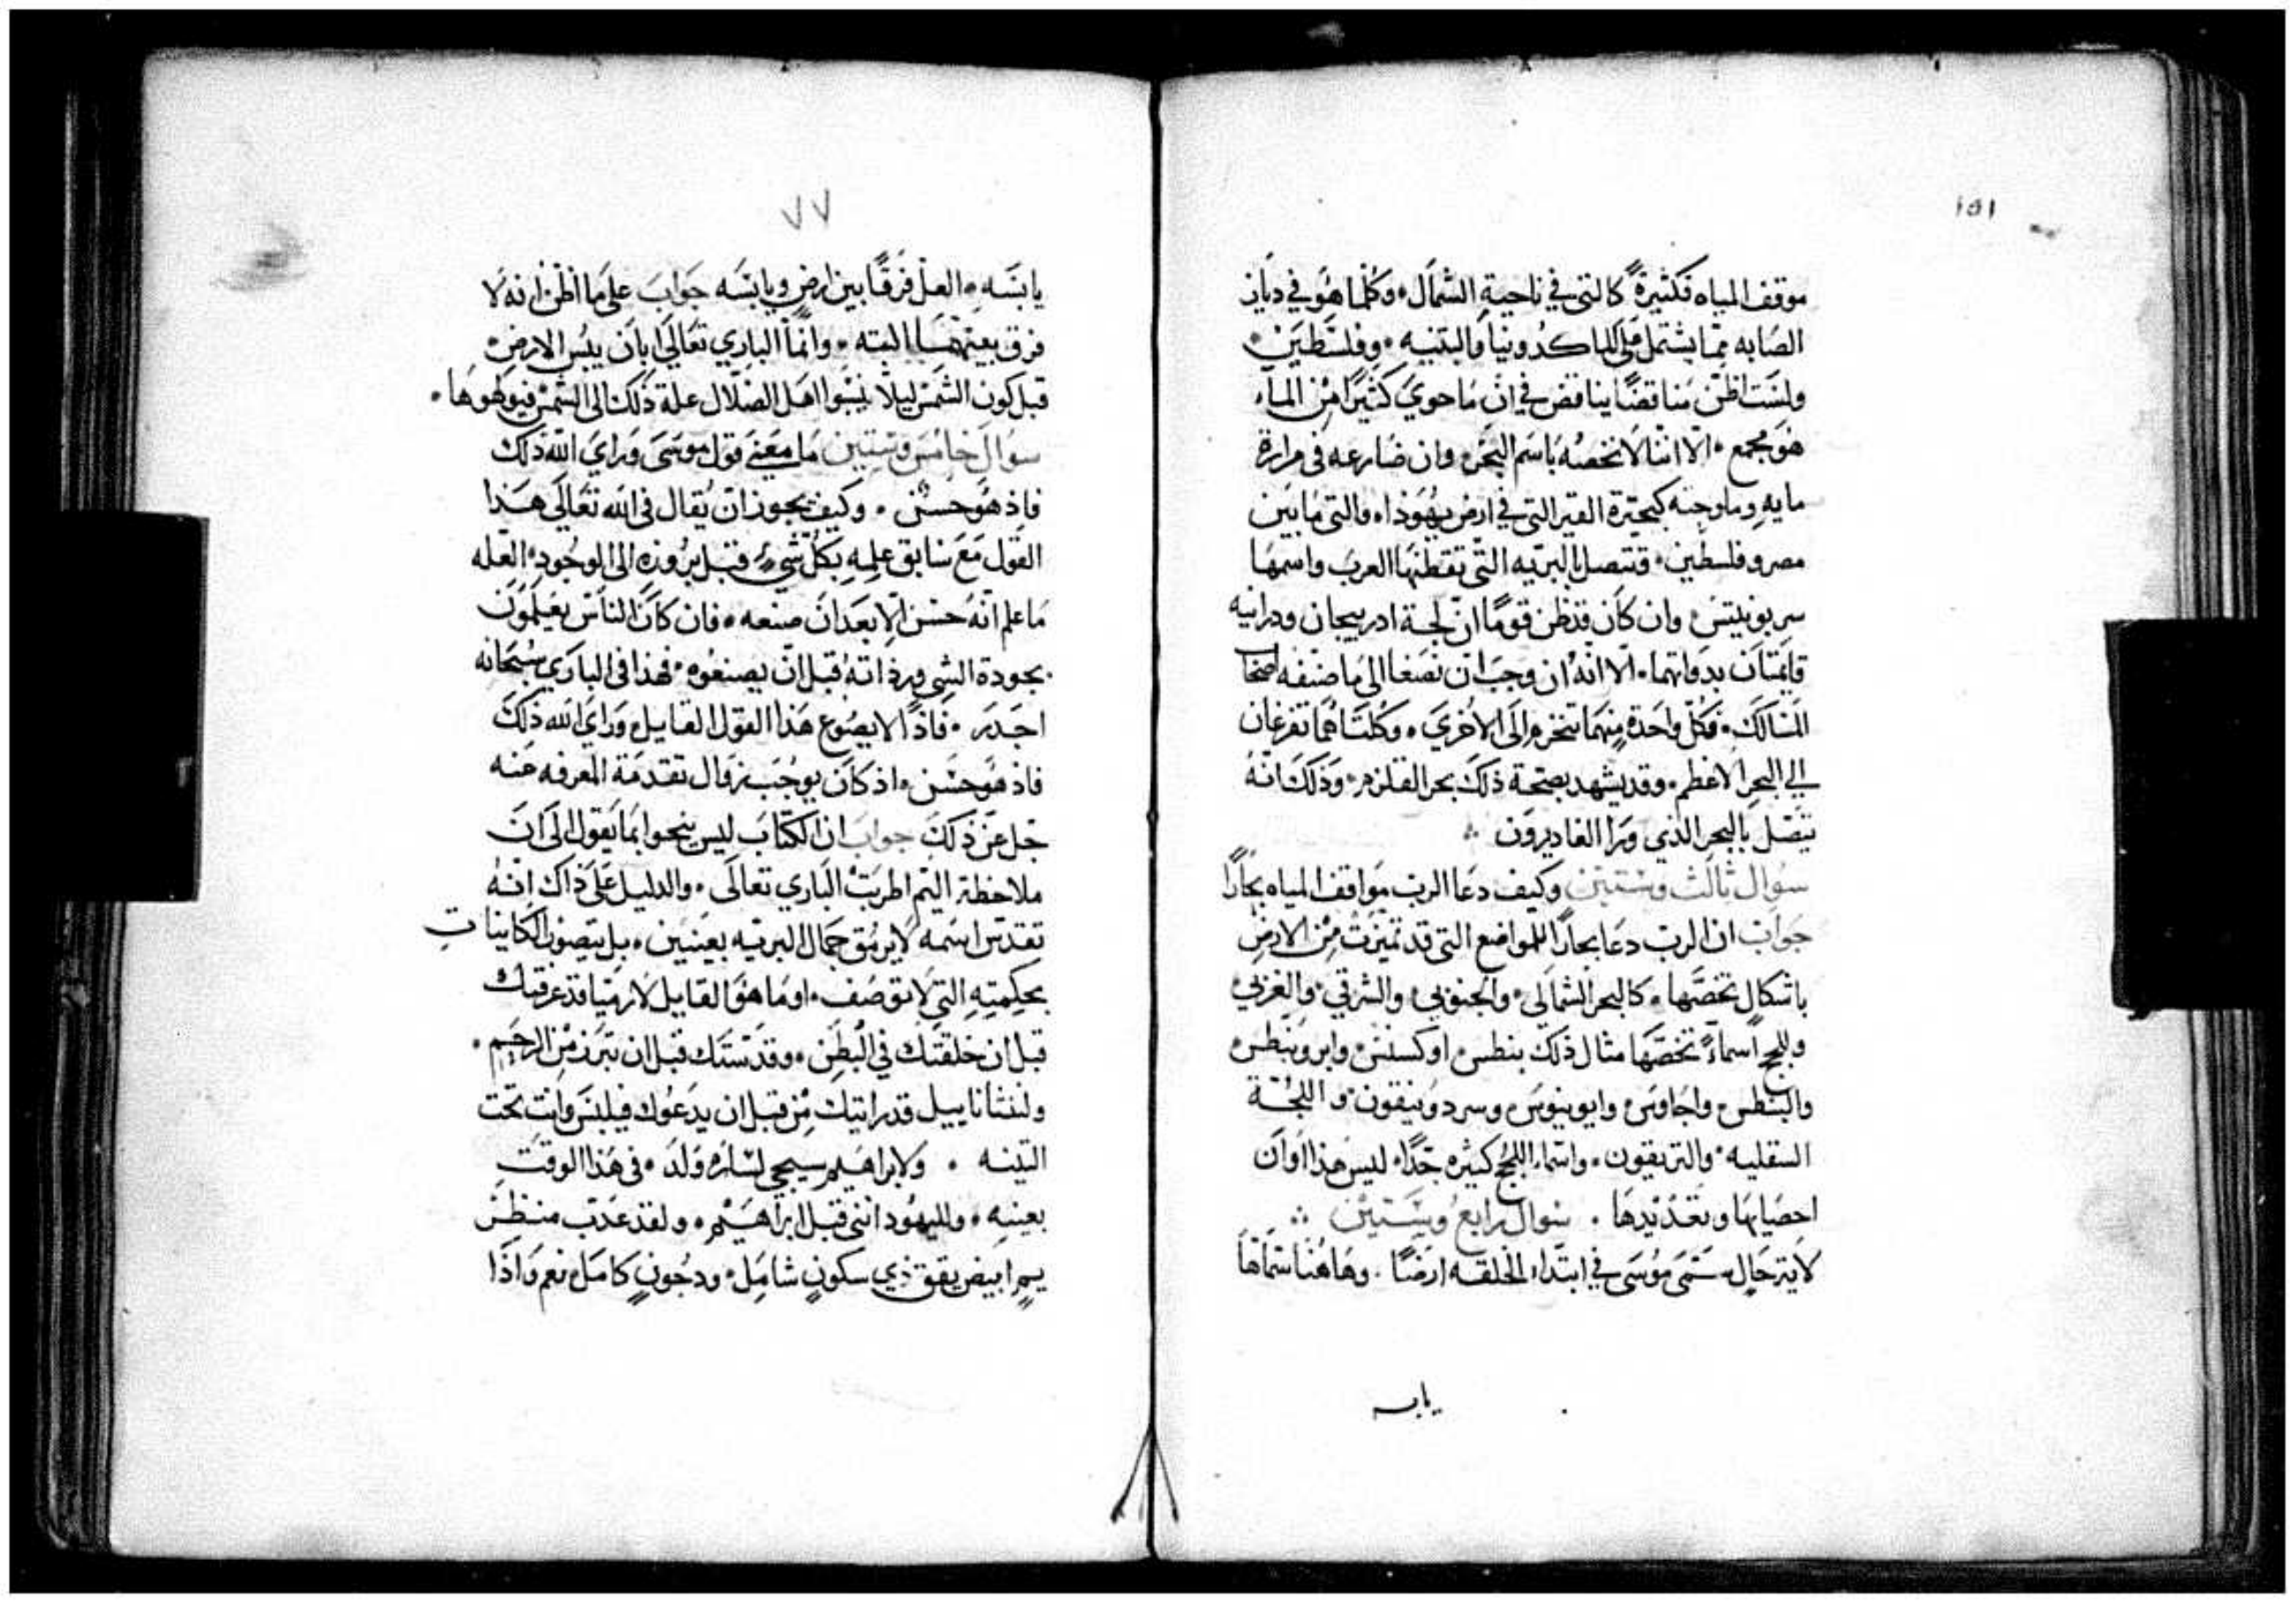 ١٥١
موقف المياه فكثيرةً كالتي في ناحية الشمال وكلما هو في ديار
الصابه مما يشتمل على الماكدونيا والبتنيه وفلسطين
ولست اظن مناقضًا يناقض في ان ما حوي كثيرًا من الماء
هو مجمع الا اننا لا نخصه باسم البحر وان ضارعه في مرارة
مايه وملوحته كبحيرة القير التي في ارض يهوذا والتي ما بين
مصر وفلسطين فتتصل بالبريه التي تقطنها العرب واسمها
سربونيتس وان كان قد ظن قومًا ان لجة ادربيجان ودرانيه
قايمتان بذواتهما الا انه ان وجب ان نصغا الى ما صنفه اصحاب
المسالك فكل واحدة منهما تنخرم الى الاخري وكلتاهما تفرغان
الي البحر الاعظم وقد يشهد بصحة ذلك بحر القلزم وذلك انه
يتصل بالبحر الذي ورا الغاديرون
سوال ثالث وستين وكيف دعا الرب مواقف المياه بحارًا
جواب ان الرب دعا بحارًا للمواضع التي قد تميزت من الارض
باشكال تخصها كالبحر الشمالي والجنوبي والشرقي والغربي
وللجج اسماءً تخصها مثال ذلك بنطس اوكسنس وابروبنطس
والبنطس واجاوس وايونيوس وسردونيقون واللجة
السقليه والتريقون واسماء اللجج كثيره جدًا ليس هذا اوان
احصايها وتعديدها سوال رابع وستين
لاية حال سمى موسى في ابتداء الخلقه ارضًا وهاهنا سماها
يابسه
٧٧
يابسه العل فرقًا بين ارض ويابسه جواب على ما اظن انه لا
فرق بينهما البته وانما الباري تعالى ابان يبس الارض
قبل كون الشمس ليلا ينسبوا اهل الضلال علة ذلك الى الشمس فيولهوها
سوال خامس وستين ما معنى قول موسى وراي الله ذلك
فاذ هو حسن وكيف يجوز ان يقال في الله تعالى هذا
القول مع سابق علمه بكل شيء قبل بروزه الى الوجود العله
ما علم انه حسن الا بعد ان صنعه فان كان الناس يعلمون
بجودة الشي ورذاته قبل ان يصنعوه فهذا في الباري سبحانه
اجدر فاذًا لا يصوغ هذا القول القايل وراي الله ذلك
فاذ هو حسن اذ كان يوجب زوال تقدمة المعرفه عنه
جل عن ذلك جواب ان الكتاب ليس ينحوا بما يقول الى ان
ملاحظة اليم اطربت الباري تعالى والدليل على ذاك انه
تقدس اسمه لا يرمق جمال البريه بعينين بل يتصور الكاينات
بحكمته التي لا توصف اوما هو القايل لارميا قد عرفتك
قبل ان خلقتك في البطن وقدستك قبل ان تبرز من الرحم
ولنثاناييل قد رايتك من قبل ان يدعوك فيلبس وانت تحت
التينه ولابراهيم سيجي لساره ولد في هذا الوقت
بعينه ولليهود انني قبل ابراهيم ولقد عذب منظر
يم ابيض يقق ذي سكون شامل ودجون كامل نعم واذا